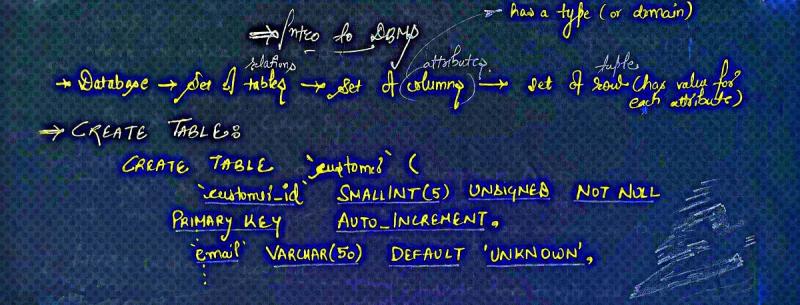 has a type (or domain)
→ Intro to DBMS
relations attributes tuple
→ Database → Set of tables → Set of columns → set of row (has value for
each attribute)
→ CREATE TABLE:
CREATE TABLE `customer` (
`customer_id` SMALLINT(5) UNSIGNED NOT NULL
PRIMARY KEY AUTO_INCREMENT,
`email` VARCHAR(50) DEFAULT 'UNKNOWN',
⋮